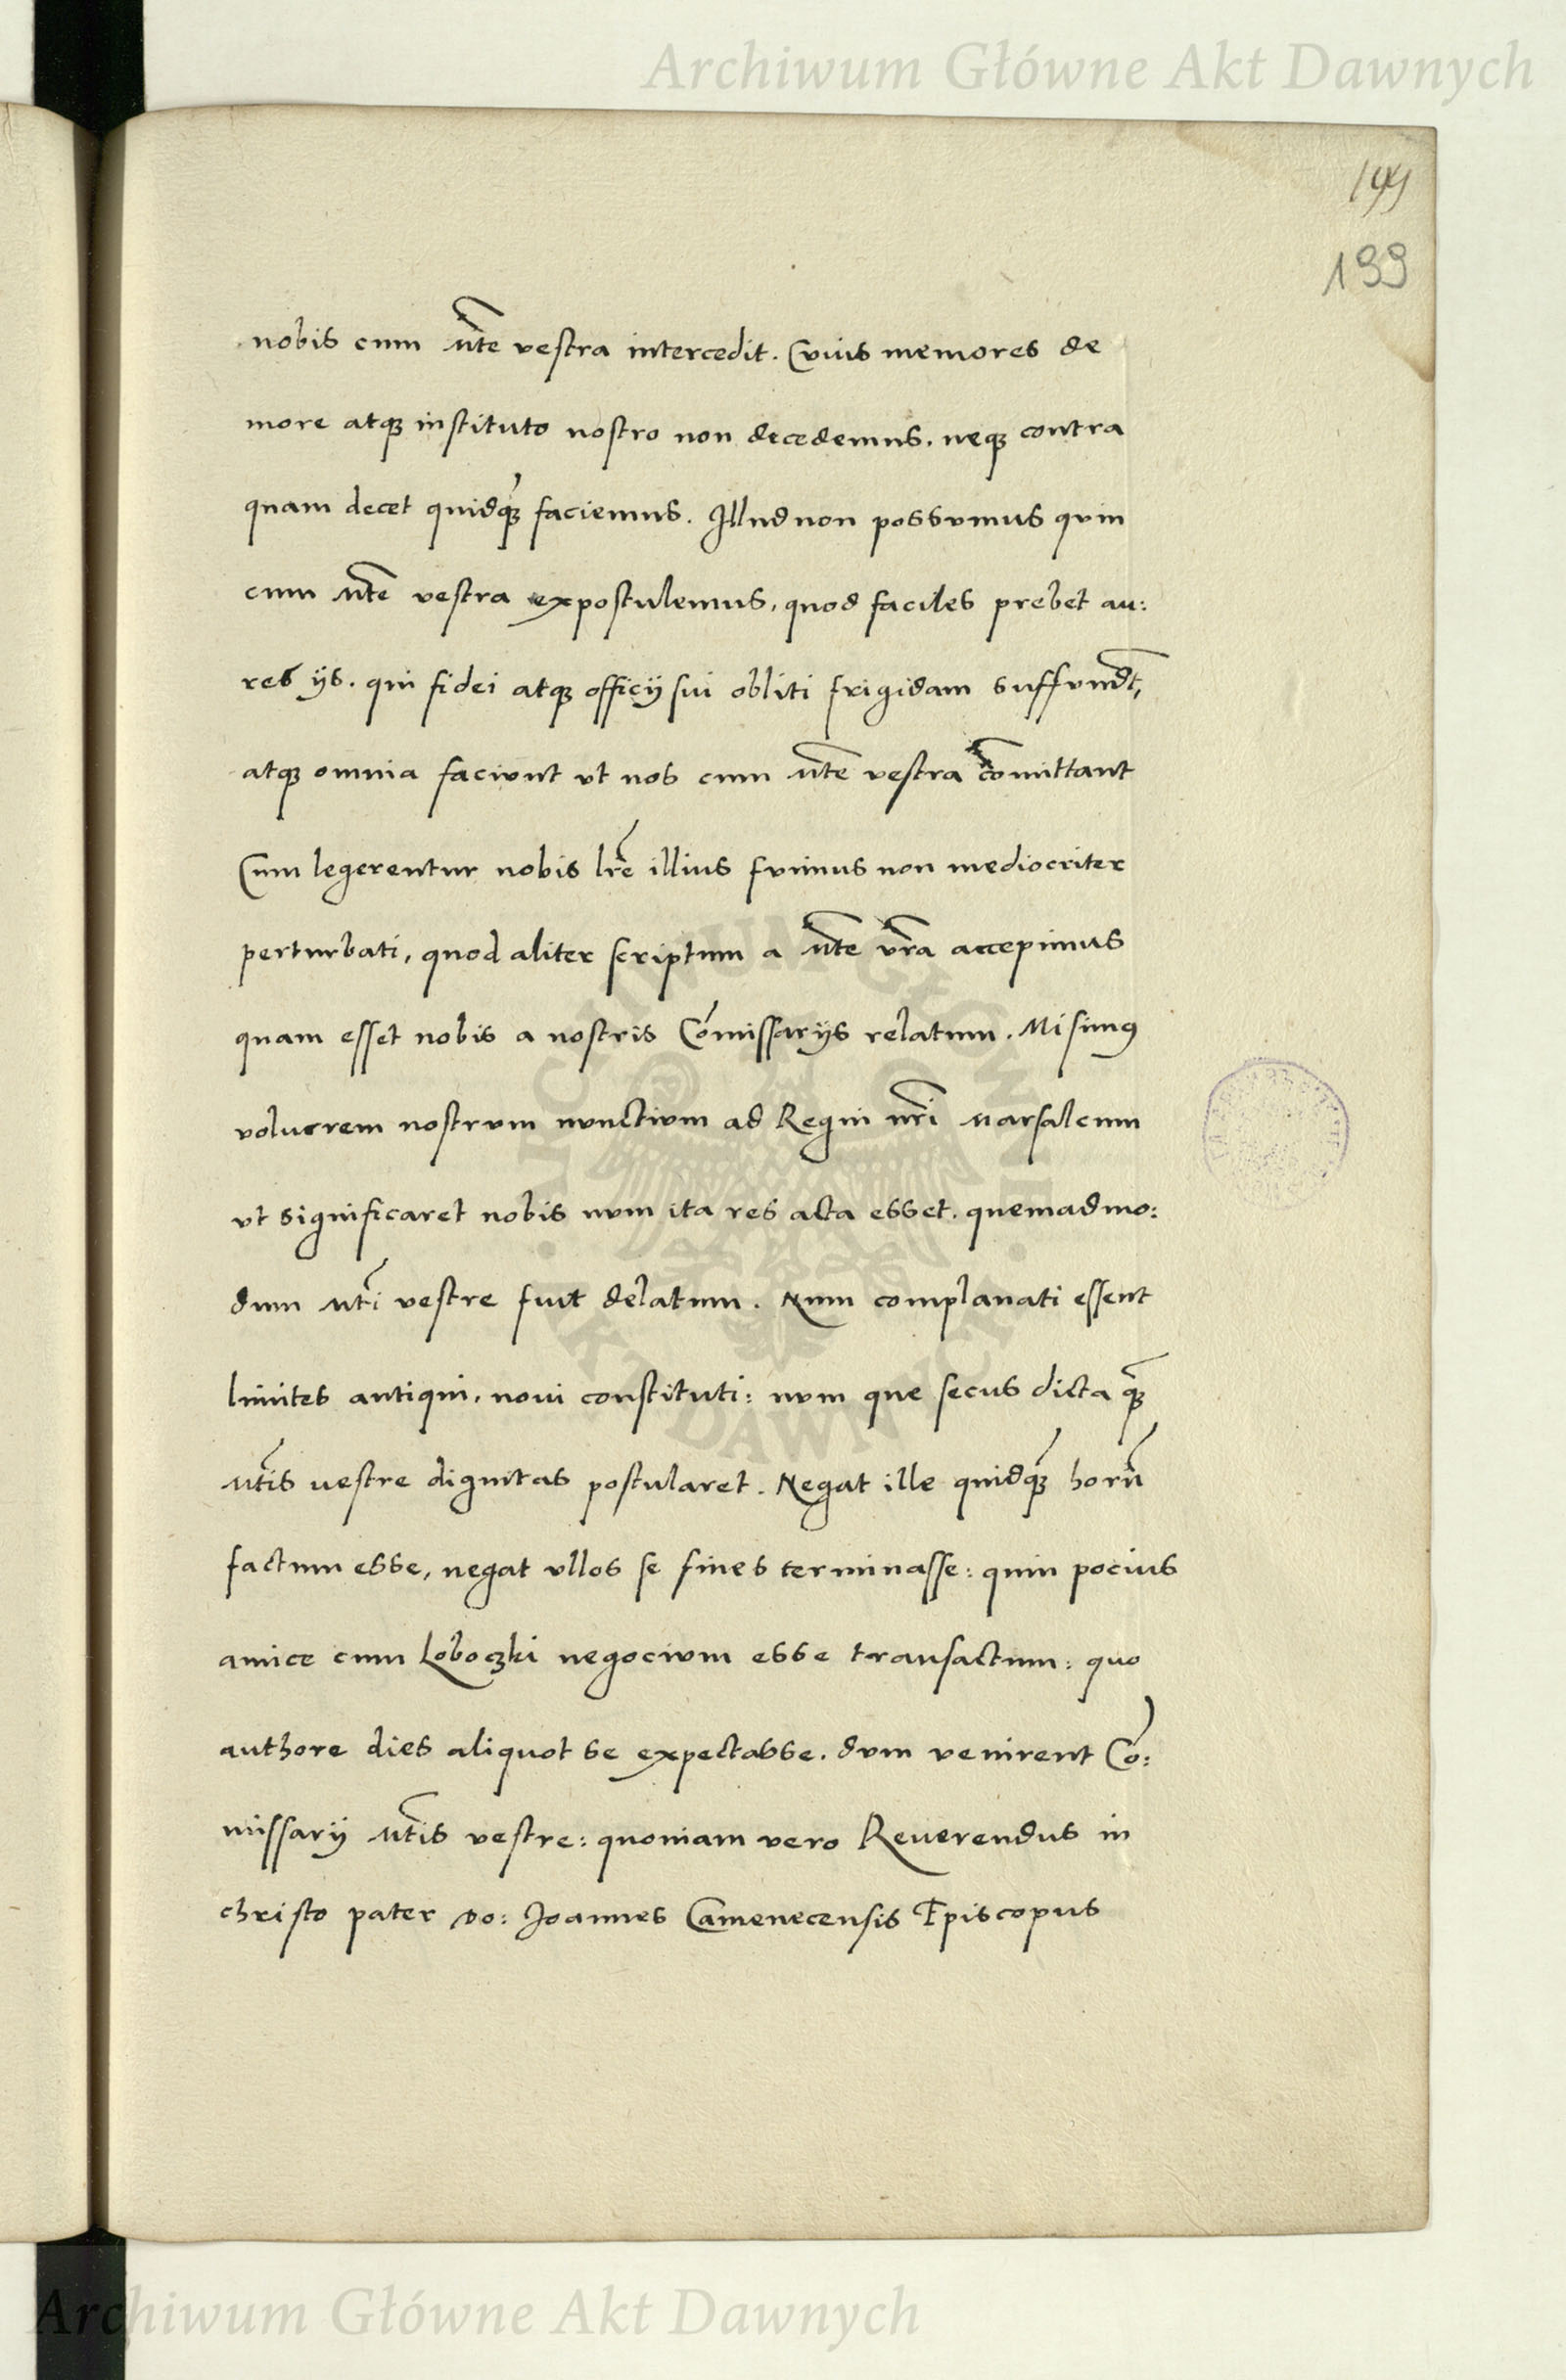 Archiwum Główne Akt Dawnych
199
199
nobis cum Mte vestra intercedit. Cuius memores de
more atq; instituto nostro non decedemus. neq; contra
quam decet quidq̃ faciemus. Illud non possumus quin
cum Mte vestra expostulemus, quod faciles prebet au:
res ijs. qui fidei atq; officij sui obliti frigidam suffundt,
atq; omnia faciunt ut nos cum Mte vestra cõmittant
Cum legerentur nobis lre illius fuimus non mediocriter
perturbati, quod aliter scriptum a Mte vra accepimus
quam esset nobis a nostris Cõmissarijs relatum. Misimus
volucrem nostrum nunctium ad Regni nri Marsalcum
ut significaret nobis num ita res acta esset. quemadmo:
dum Mti vestre fuit delatum. Num complanati essent
limites antiqui. noui constituti: num que secus dicta q̃
Mtis uestre dignitas postularet. Negat ille quidq̃ horũ
factum esse, negat ullos se fines terminasse: quin pocius
amice cum Loboczki negocium esse transactum: quo
authore dies aliquot se expectasse. dum venirent Cõ:
missarij Mtis vestre: quoniam vero Reuerendus in
christo pater do: Joannes Camenecensis Episcopus
Archiwum Główne Akt Dawnych